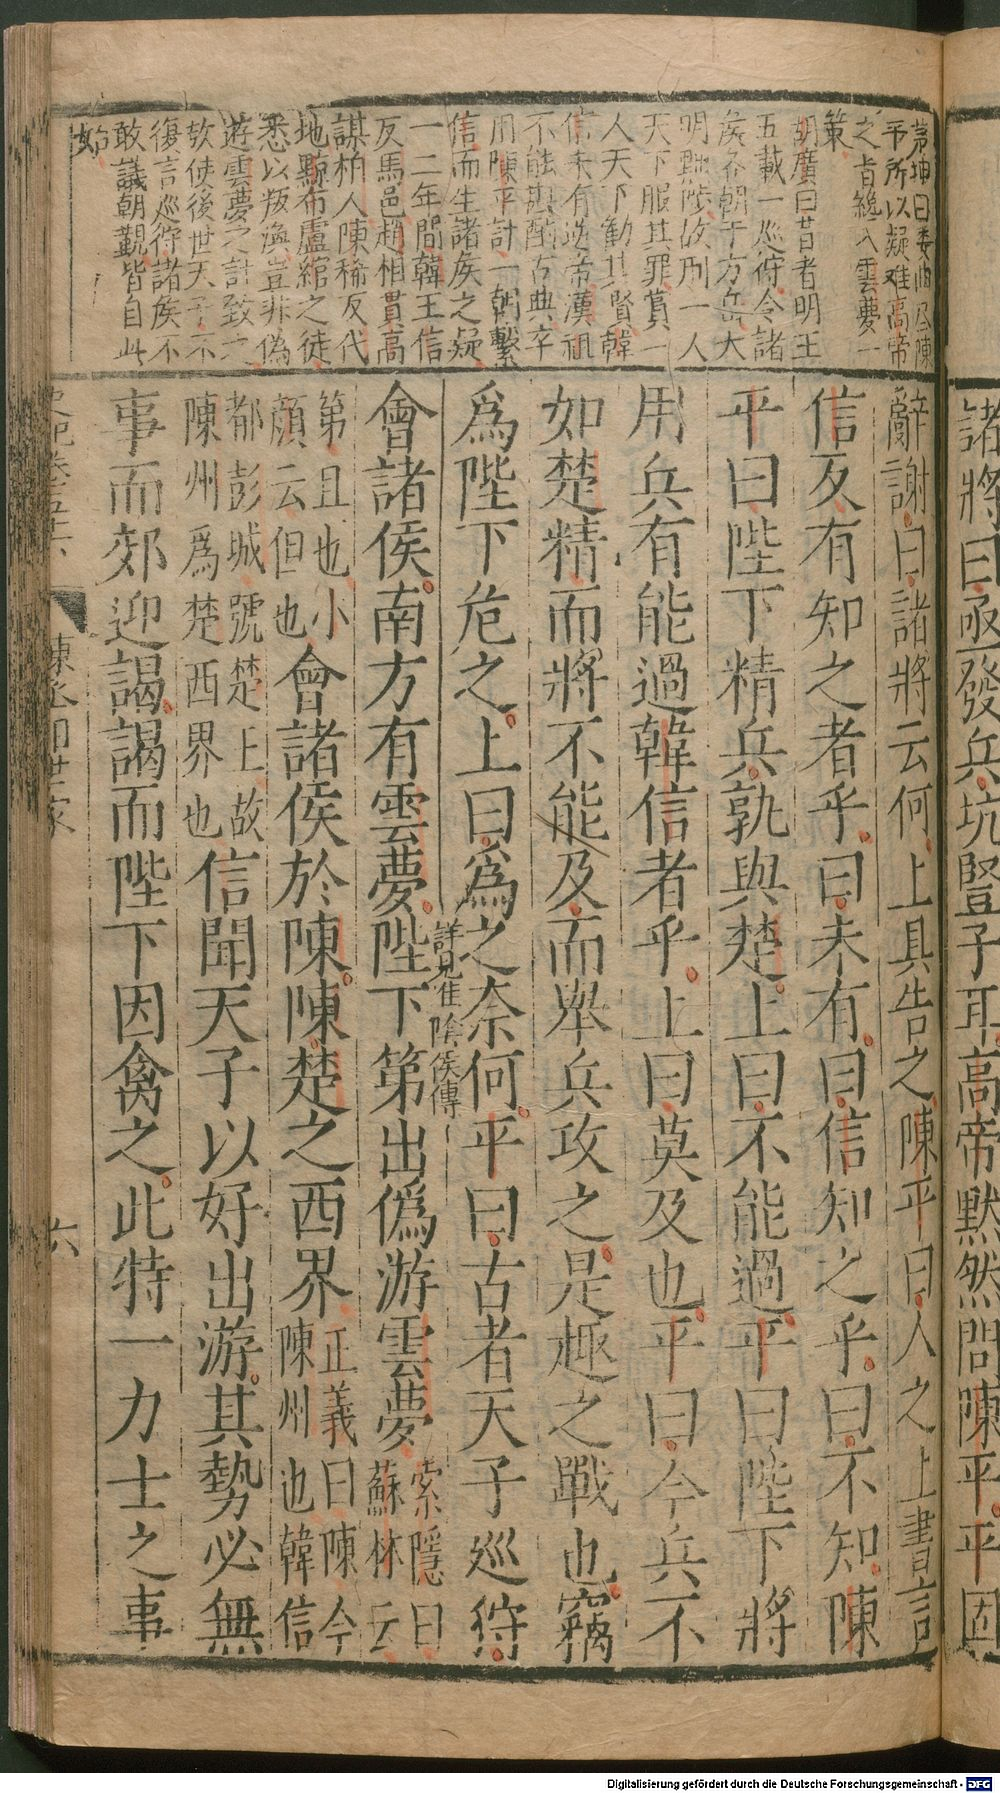 諸將曰亟發兵坑豎子耳高帝默然問陳平平固
茅坤曰委曲尽陳
平所以疑难高帝
之旨總入雲夢一
策
胡廣曰昔者明王
五載一巡狩令諸
侯各朝于方岳大
明黜陟故刑一人
天下服其罪賞一
人天下勸其賢韓
信未有逆帝漢祖
不能斟酌古典卒
用陳平計一朝繫
信而生諸侯之疑
一二年間韓王信
反馬邑趙相貫高
謀柏人陳稀反代
地黥布盧綰之徒
悉以叛渙豈非偽
遊雲夢之計致之
欤使後世天子不
復言巡狩諸侯不
敢議朝覲皆自此
始
辭謝曰諸將云何上具告之陳平曰人之上書言
信反有知之者乎曰未有曰信知之乎曰不知陳
平曰陛下精兵孰與楚上曰不能過平曰陛下將
用兵有能過韓信者乎上曰莫及也平曰今兵不
如楚精而將不能及而舉兵攻之是趣之戰也竊
爲陛下危之上曰爲之奈何平曰古者天子巡狩
詳見淮陰侯傳
會諸侯南方有雲夢陛下第出偽游雲夢索隱曰蘇林云
第且也小顔云但也會諸侯於陳陳楚之西界正義曰陳今陳州也韓信
都彭城號楚王故陳州爲楚西界也信聞天子以好出游其勢必無
事而郊迎謁謁而陛下因禽之此特一力士之事
史記卷五十六
陳丞相世家
六
Digitalisierung gefördert durch die Deutsche Forschungsgemeinschaft - DFG